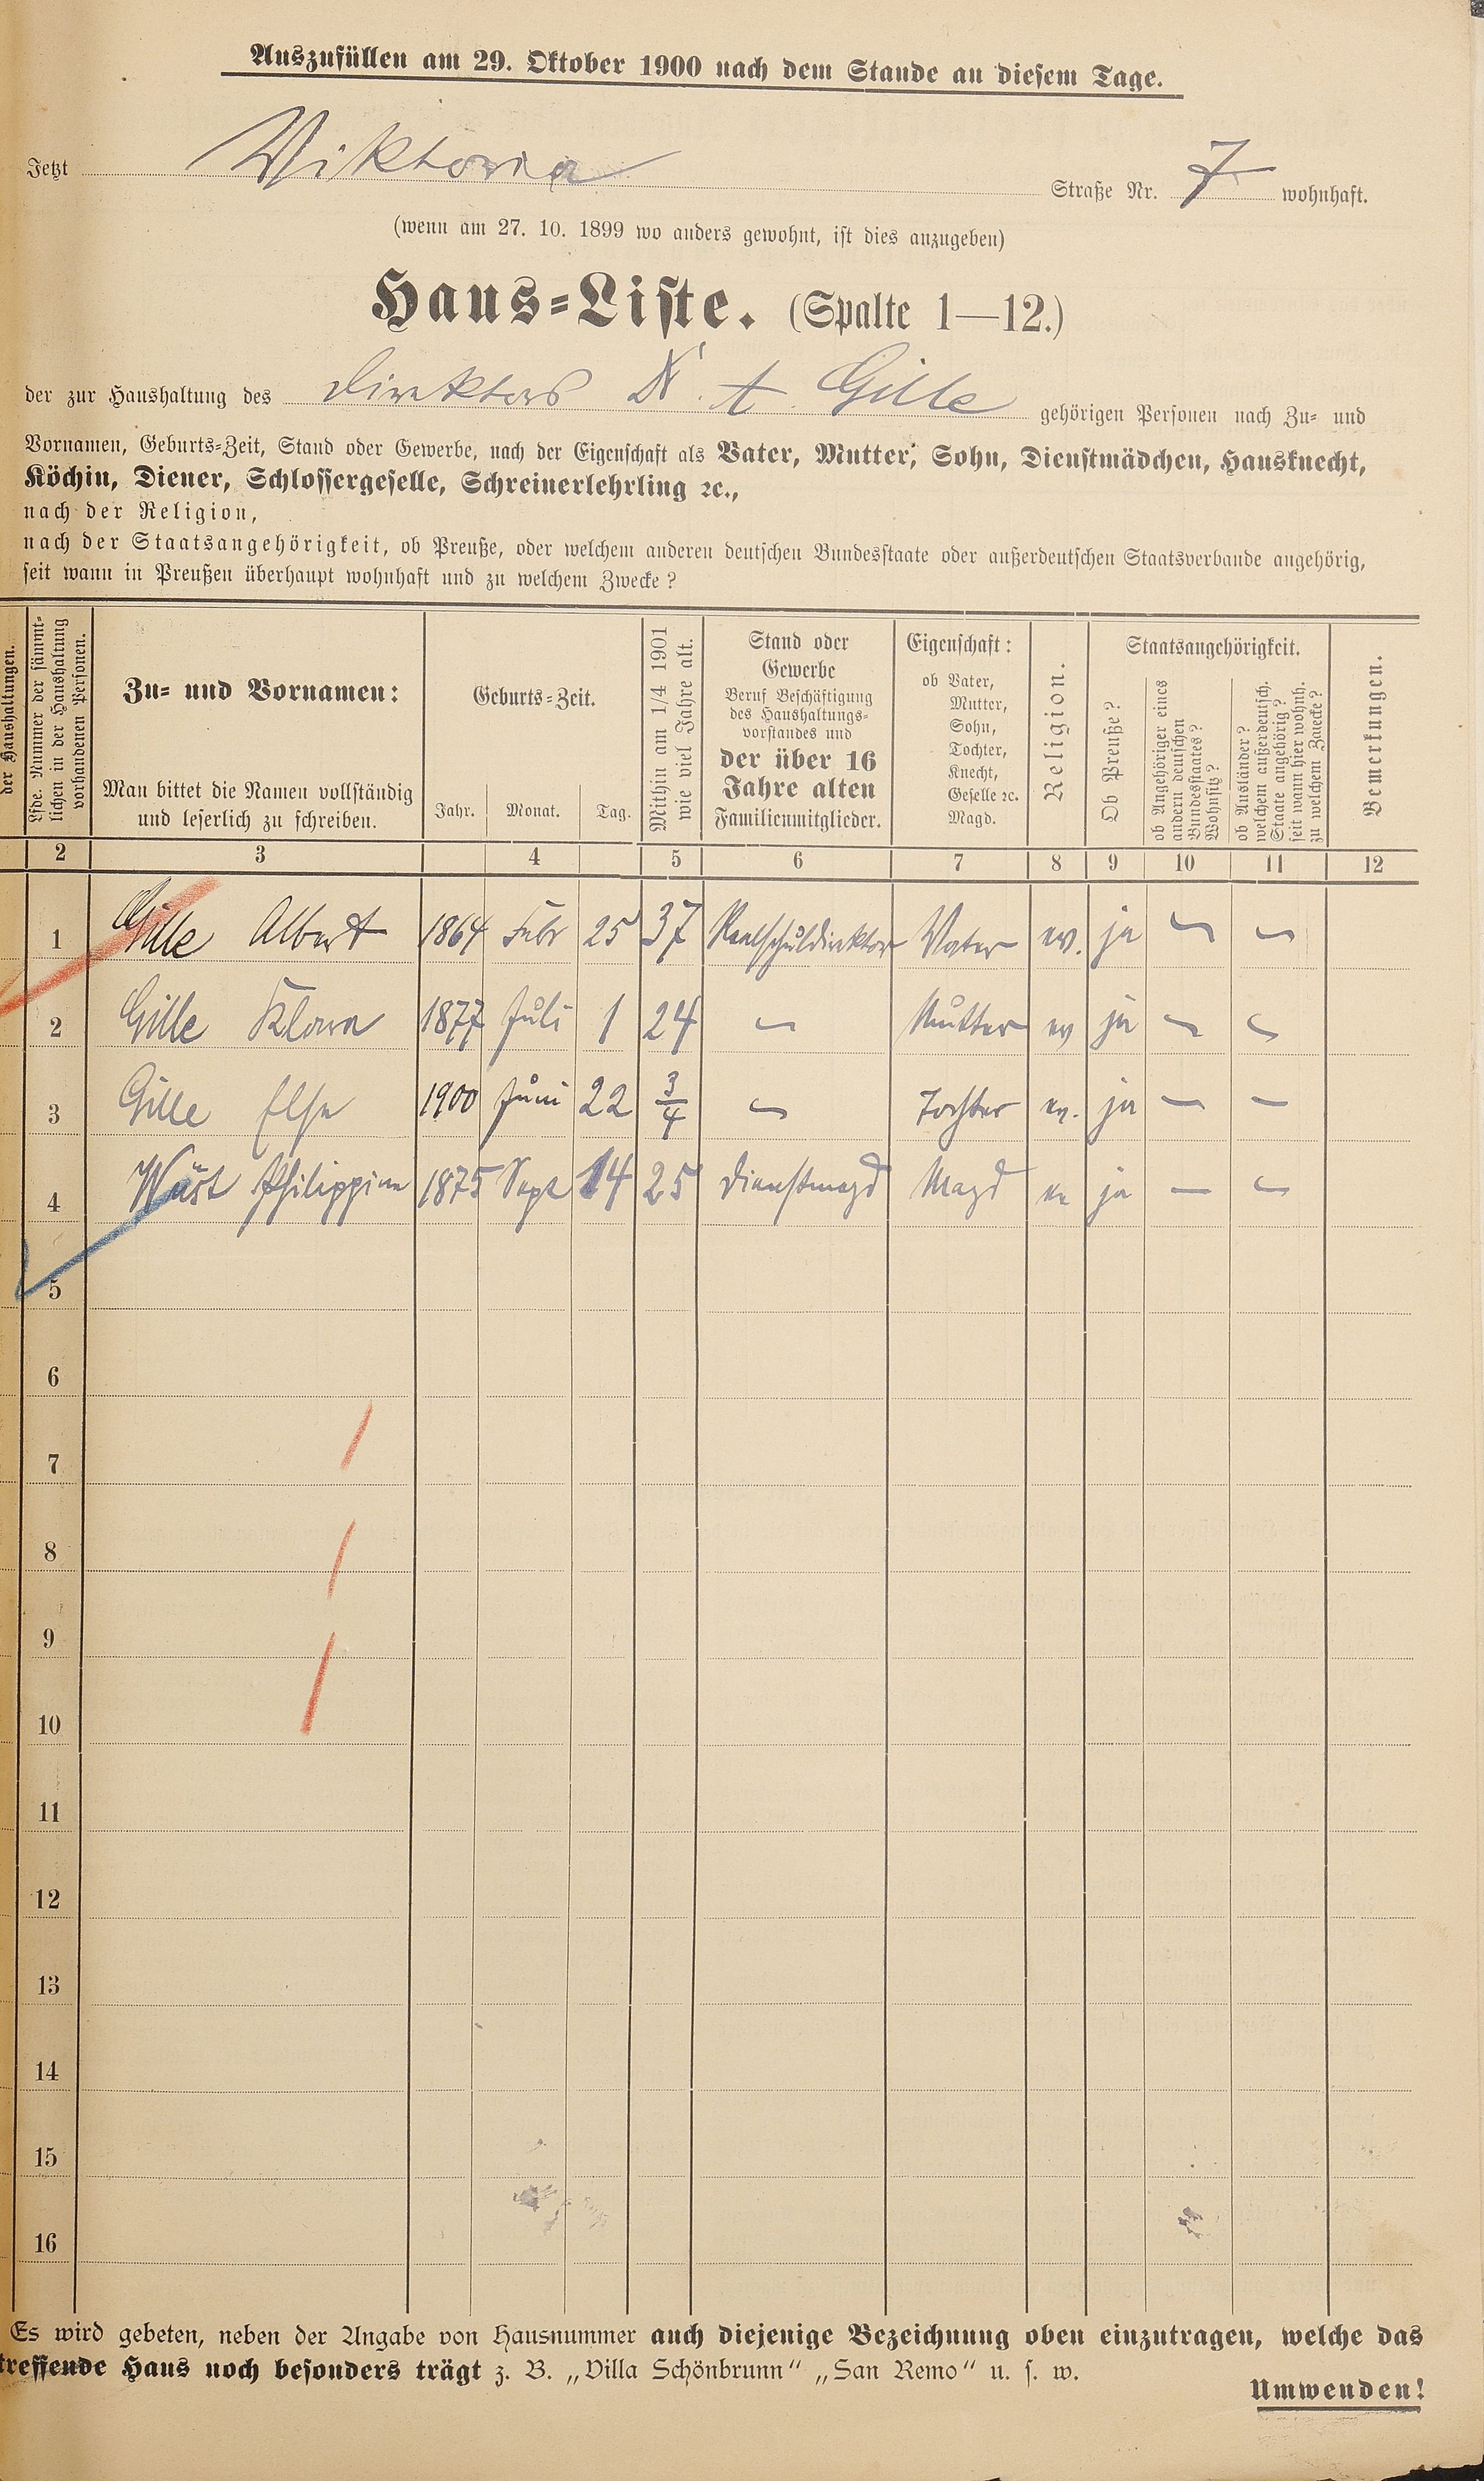 Auszufüllen am 29. Oktober 1900 nach dem Stande an diesem Tage.
Jetzt Viktoria Straße Nr. 7 wohnhaft.
(wenn am 27. 10. 1899 wo anders gewohnt, ist dies anzugeben)
Haus-Liste. (Spalte 1—12.)
der zur Haushaltung des Direktors Dr. A. Gille gehörigen Personen nach Zu- und
Vornamen, Geburts-Zeit, Stand oder Gewerbe, nach der Eigenschaft als Vater, Mutter, Sohn, Dienstmädchen, Hausknecht,
Köchin, Diener, Schlossergeselle, Schreinerlehrling ꝛc.,
nach der Religion,
nach der Staatsangehörigkeit, ob Preuße, oder welchem anderen deutschen Bundesstaate oder außerdeutschen Staatsverbande angehörig,
seit wann in Preußen überhaupt wohnhaft und zu welchem Zwecke?
der Haushaltungen.
Lfde. Nummer der sämmt-
lichen in der Haushaltung
vorhandenen Personen.
Zu- und Vornamen:
Man bittet die Namen vollständig
und leserlich zu schreiben.
Geburts-Zeit.
Jahr. Monat. Tag.
Mithin am 1/4 1901
wie viel Jahre alt.
Stand oder
Gewerbe
Beruf Beschäftigung
des Haushaltungs-
vorstandes und
der über 16
Jahre alten
Familienmitglieder.
Eigenschaft:
ob Vater,
Mutter,
Sohn,
Tochter,
Knecht,
Geselle ꝛc.
Magd.
Religion.
Staatsangehörigkeit.
Ob Preuße?
ob Angehöriger eines
andern deutschen
Bundesstaates?
Wohnsitz?
ob Ausländer?
welchem außerdeutsch.
Staate angehörig?
seit wann hier wohnh.
zu welchem Zwecke?
Bemerkungen.
2 3 4 5 6 7 8 9 10 11 12
1 Gille Albert 1864 Febr 25 37 Realschuldirektor Vater ev. ja — —
2 Gille Klara 1877 Juli 1 24 — Mutter ev ja — —
3 Gille Else 1900 Juni 22 3/4 — Tochter ev. ja — —
4 Wüst Philippine 1875 Sept 14 25 Dienstmagd Magd ev ja — —
5
6
7
8
9
10
11
12
13
14
15
16
Es wird gebeten, neben der Angabe von Hausnummer auch diejenige Bezeichnung oben einzutragen, welche das
treffende Haus noch besonders trägt z. B. „Villa Schönbrunn“ „San Remo“ u. s. w.
Umwenden!